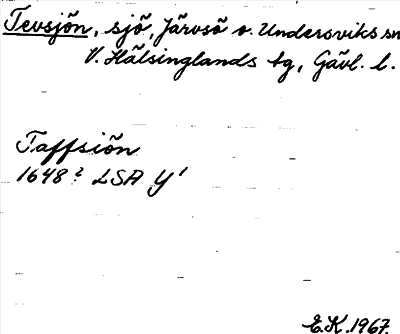 Tevsjön, sjö, Järvsö o. Undersviks sn
V. Hälsinglands tg, Gävl. l.
Taffsiön
1648? LSA Y¹
E.K. 1967.